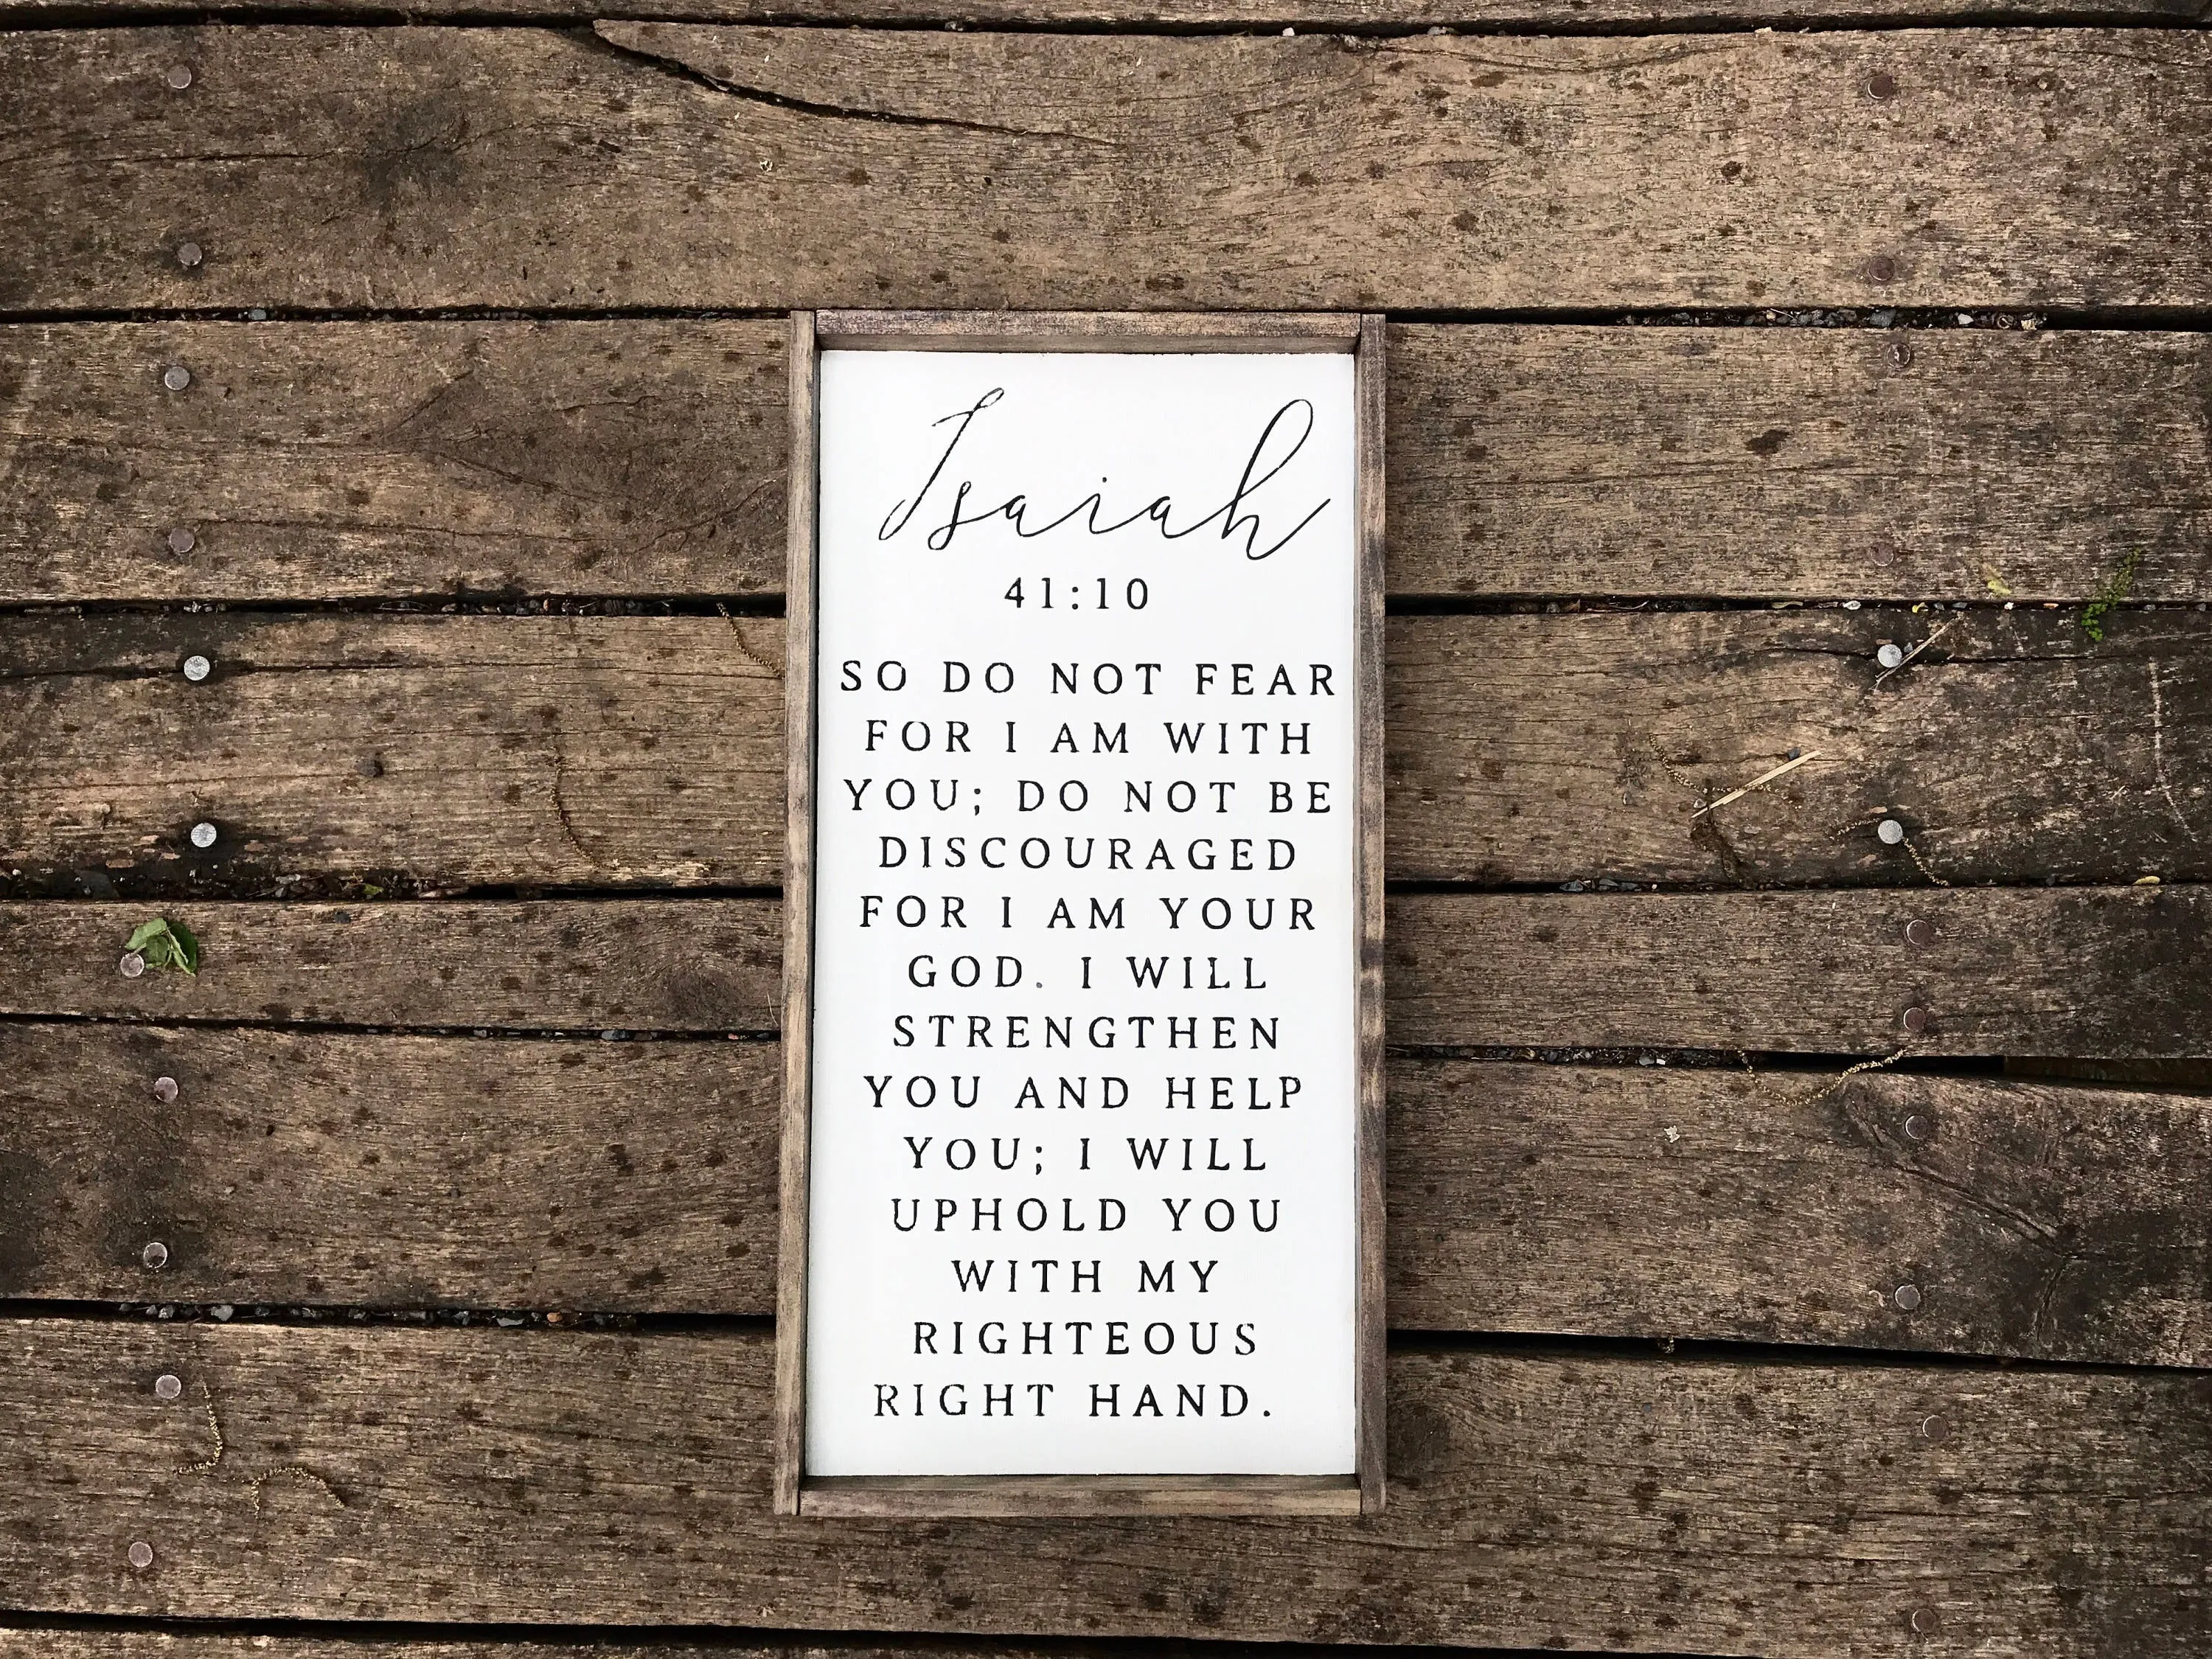 Isaiah
41:10
SO DO NOT FEAR
FOR I AM WITH
YOU; DO NOT BE
DISCOURAGED
FOR I AM YOUR
GOD. I WILL
STRENGTHEN
YOU AND HELP
YOU; I WILL
UPHOLD YOU
WITH MY
RIGHTEOUS
RIGHT HAND.